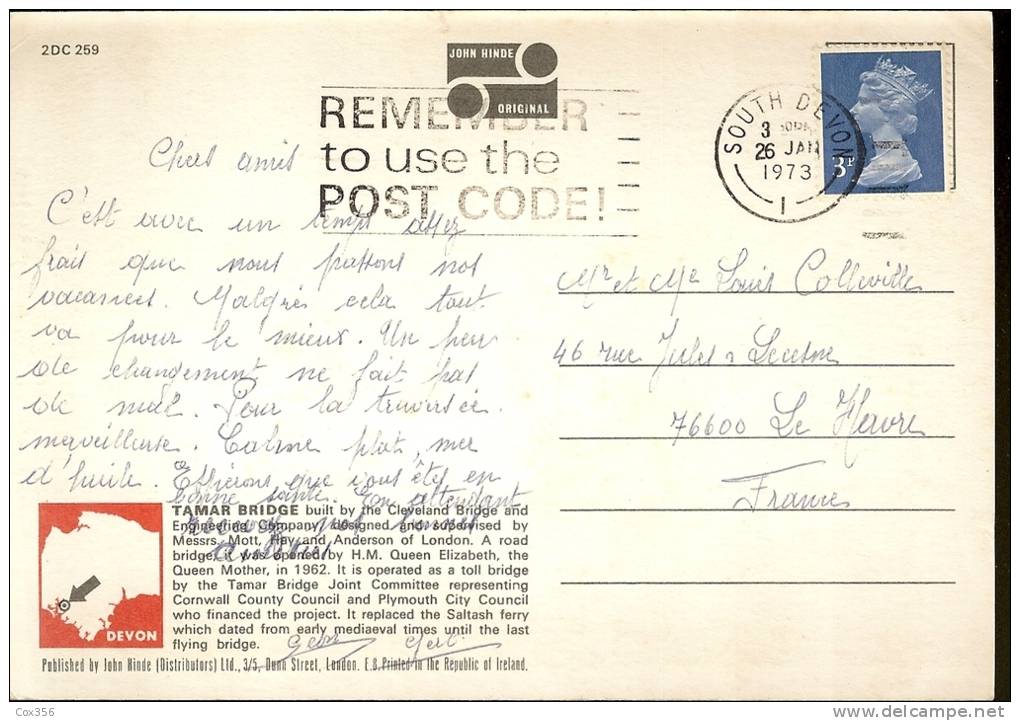 2DC 259
JOHN HINDE
ORIGINAL
REMEMBER
to use the
POST CODE!
SOUTH DEVON
3 30PM
26 JAN
1973
1
3P
Chers amis
C'est avec un temps assez
frais que nous passons nos
vacances. Malgrés cela tout
va pour le mieux. Un peu
de changement ne fait pas
de mal. Pour la traversée.
merveilleuse. Calme plat, mer
d'huile. Espérons que vous êtes en
bonne santé. En attendant
recevez nos bonnes
amitiés
Mr et Me Louis Colleville
46 rue Jules Lecesne
76600 Le Havre
France
TAMAR BRIDGE built by the Cleveland Bridge and
Engineering Company, designed and supervised by
Messrs. Mott, Hay and Anderson of London. A road
bridge, it was opened by H.M. Queen Elizabeth, the
Queen Mother, in 1962. It is operated as a toll bridge
by the Tamar Bridge Joint Committee representing
Cornwall County Council and Plymouth City Council
who financed the project. It replaced the Saltash ferry
which dated from early mediaeval times until the last
flying bridge.
DEVON
Published by John Hinde (Distributors) Ltd., 3/5, Dunn Street, London. E.8. Printed in the Republic of Ireland.
Cox356
www.delcampe.net